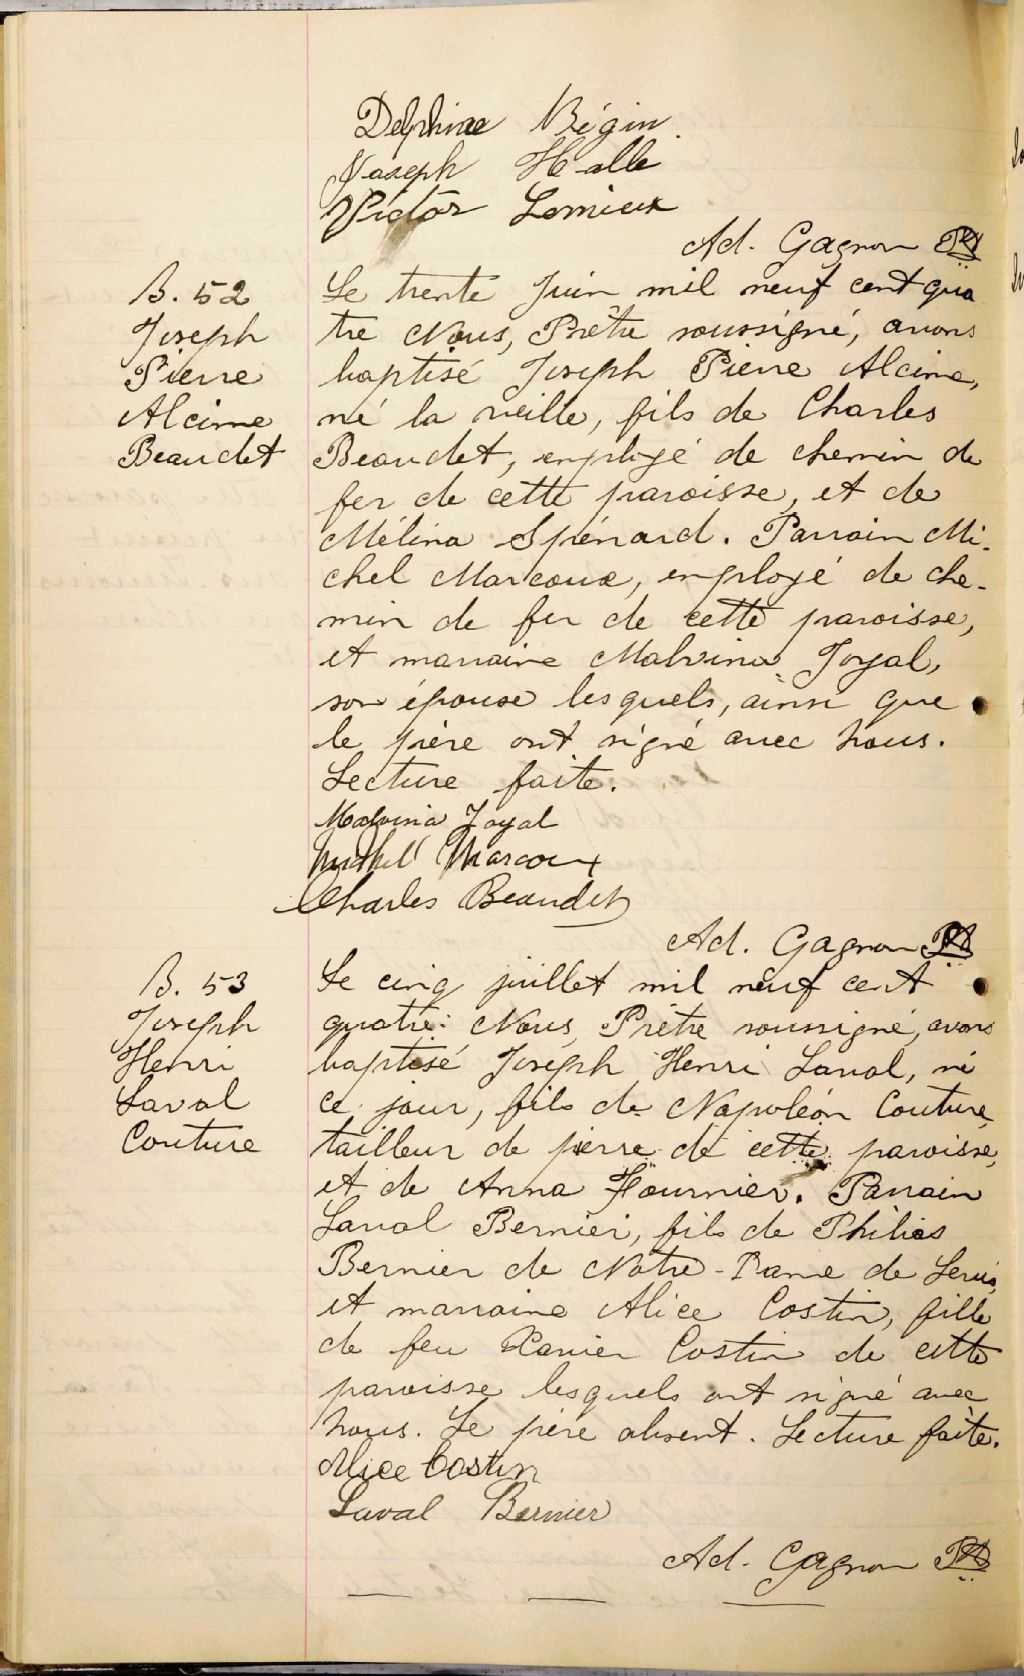 Delphine Bégin
Joseph Hallé
Victor Lemieux
Ad. Gagnon Ptr
B. 52
Joseph
Pierre
Alcime
Beaudet
Le trente Juin mil neuf cent qua
tre Nous, Prêtre soussigné, avons
baptisé Joseph Pierre Alcime,
né la veille, fils de Charles
Beaudet, employé de chemin de
fer de cette paroisse, et de
Mélina Spénard. Parrain Mi-
chel Marcoux, employé de che-
min de fer de cette paroisse,
et marraine Malvina Joyal,
son épouse lesquels, ainsi que
le père ont signé avec nous.
Lecture faite.
Malvina Joyal
Michel Marcoux
Charles Beaudet
Ad. Gagnon Ptr
B. 53
Joseph
Henri
Laval
Couture
Le cinq juillet mil neuf cent
quatre Nous, Prêtre soussigné, avons
baptisé Joseph Henri Laval, né
ce jour, fils de Napoléon Couture,
tailleur de pierre de cette paroisse,
et de Anna Fournier. Parrain
Laval Bernier, fils de Philias
Bernier de Notre-Dame de Levis,
et marraine Alice Costin, fille
de feu Xavier Costin de cette
paroisse lesquels ont signé avec
nous. Le père absent. Lecture faite.
Alice Costin
Laval Bernier
Ad. Gagnon Ptr